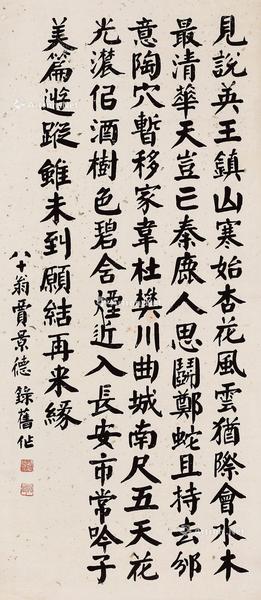 見說英王鎮山寒始杏花風雲猶際會水木
最清華天豈亡秦鹿人思鬭鄭蛇且持去邠
意陶穴暫移家韋杜樊川曲城南尺五天花
光濃侶酒樹色碧含煙近入長安市常吟子
美篇遊蹤雖未到願結再来緣
八十翁賈景德錄舊作